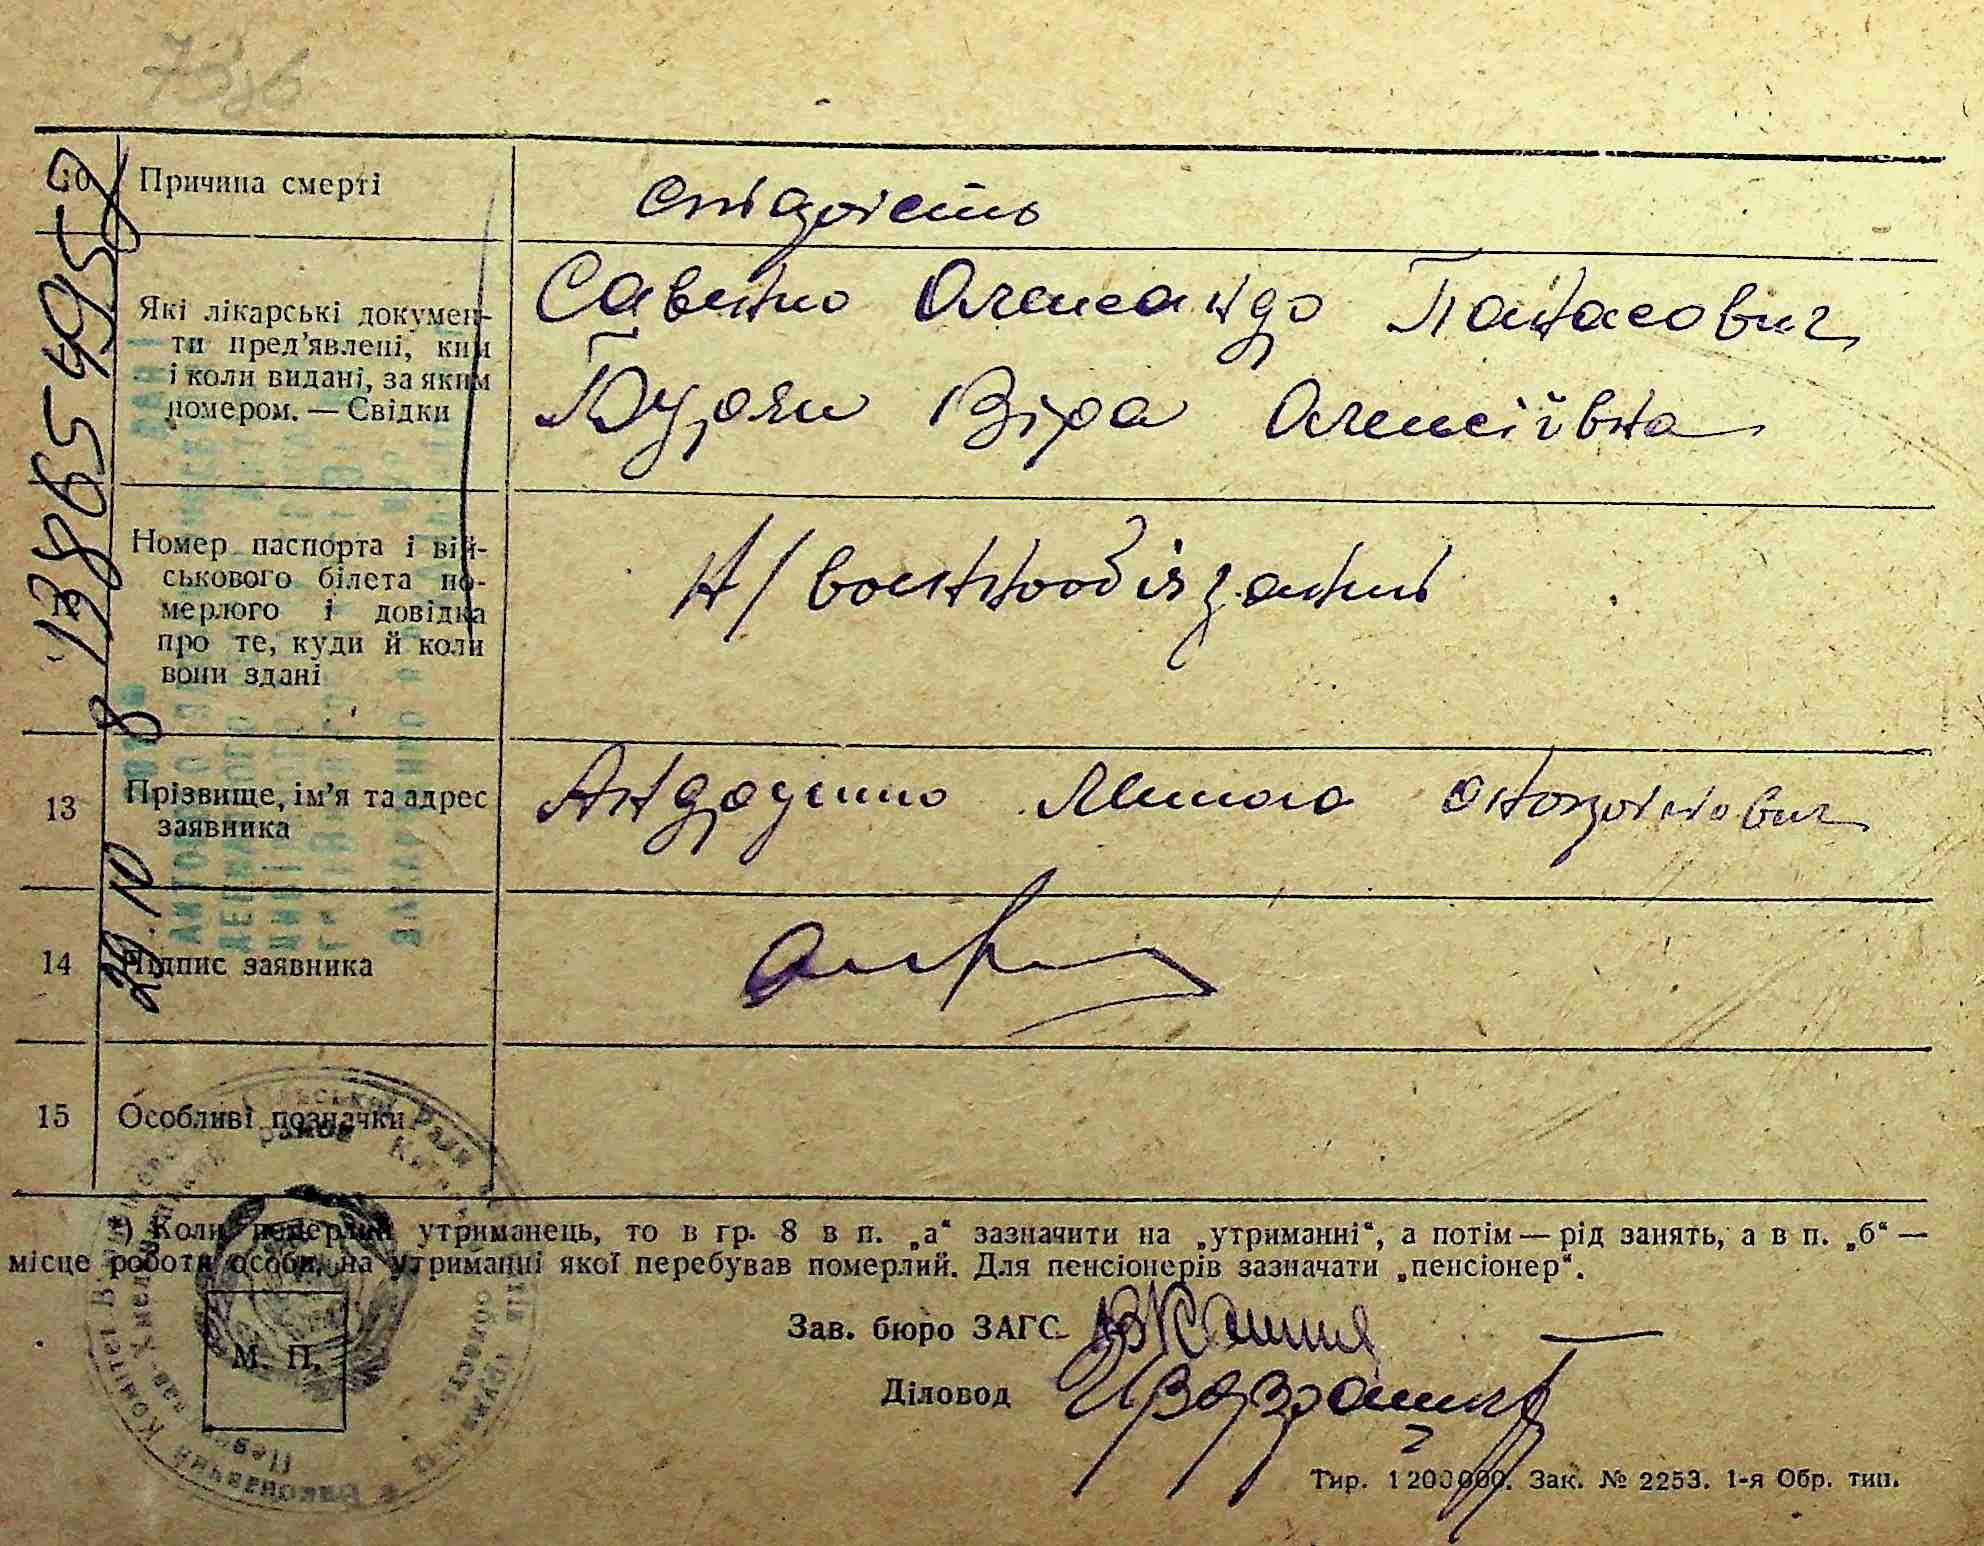 10 Причина смерті
старість
Які лікарські докумен-
ти пред’явлені, ким
і коли видані, за яким
номером. — Свідки
Савенко Олександр Панасович
Буряк Віра Олексіївна
12
Номер паспорта і вій-
ськового білета по-
мерлого і довідка
про те, куди й коли
вони здані
н/воєннообізаний
13 Прізвище, ім’я та адрес
заявника
Андрущенко Микола
14 Підпис заявника
15 Особливі позначки
) Коли померлий утриманець, то в гр. 8 в п. „а“ зазначити на „утриманні“, а потім — рід занять, а в п. „б“ —
місце роботи особи, на утриманні якої перебував померлий. Для пенсіонерів зазначати „пенсіонер“.
Зав. бюро ЗАГС
М. П.
Діловод
Тир. 1200000. Зак. № 2253. 1-я Обр. тип.
29.10